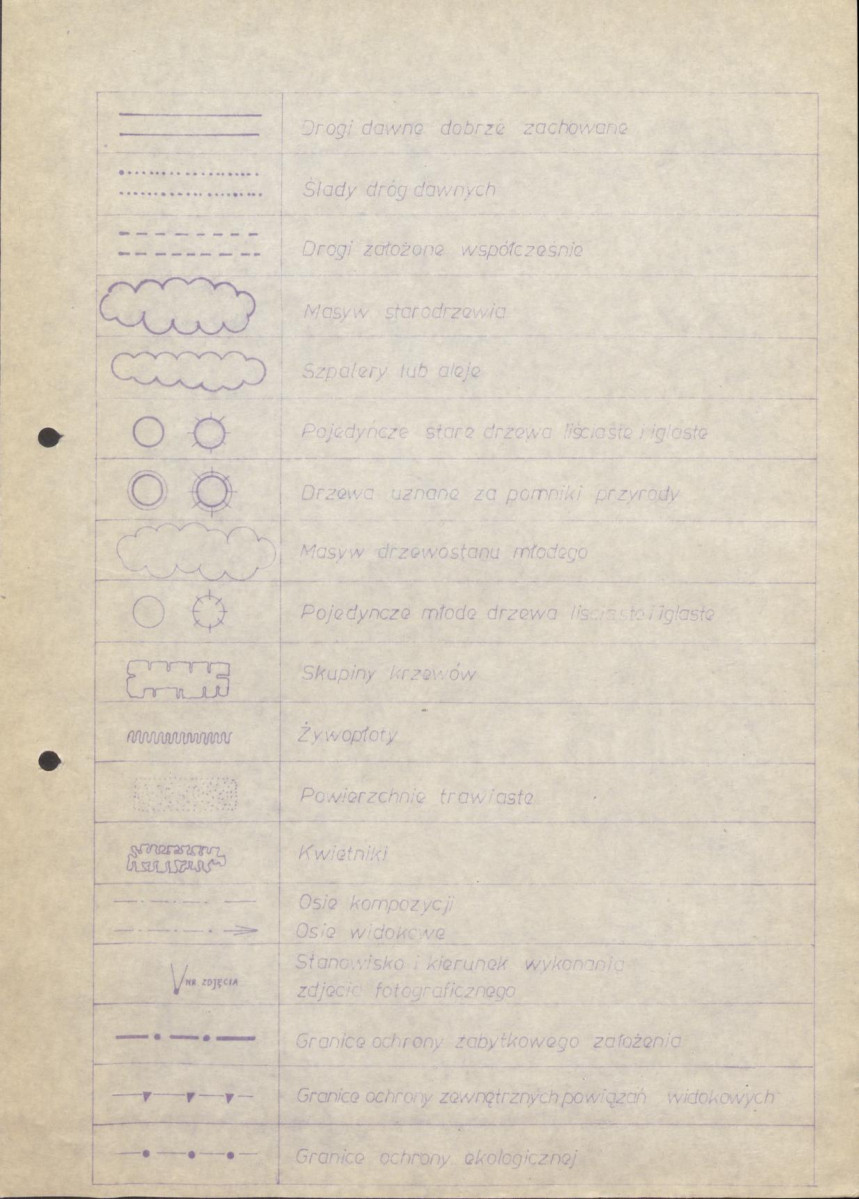 Drogi dawne dobrze zachowane
Ślady dróg dawnych
Drogi założone współcześnie
Masyw starodrzewia
Szpalery lub aleje
Pojedyńcze stare drzewa liściaste i iglaste
Drzewa uznane za pomniki przyrody
Masyw drzewostanu młodego
Pojedyńcze młode drzewa liściaste i iglaste
Skupiny krzewów
Żywopłoty
Powierzchnie trawiaste
Kwietniki
Osie kompozycji
Osie widokowe
NR ZDJĘCIA
Stanowisko i kierunek wykonania
zdjęcia fotograficznego
Granice ochrony zabytkowego założenia
Granice ochrony zewnętrznych powiązań widokowych
Granice ochrony ekologicznej